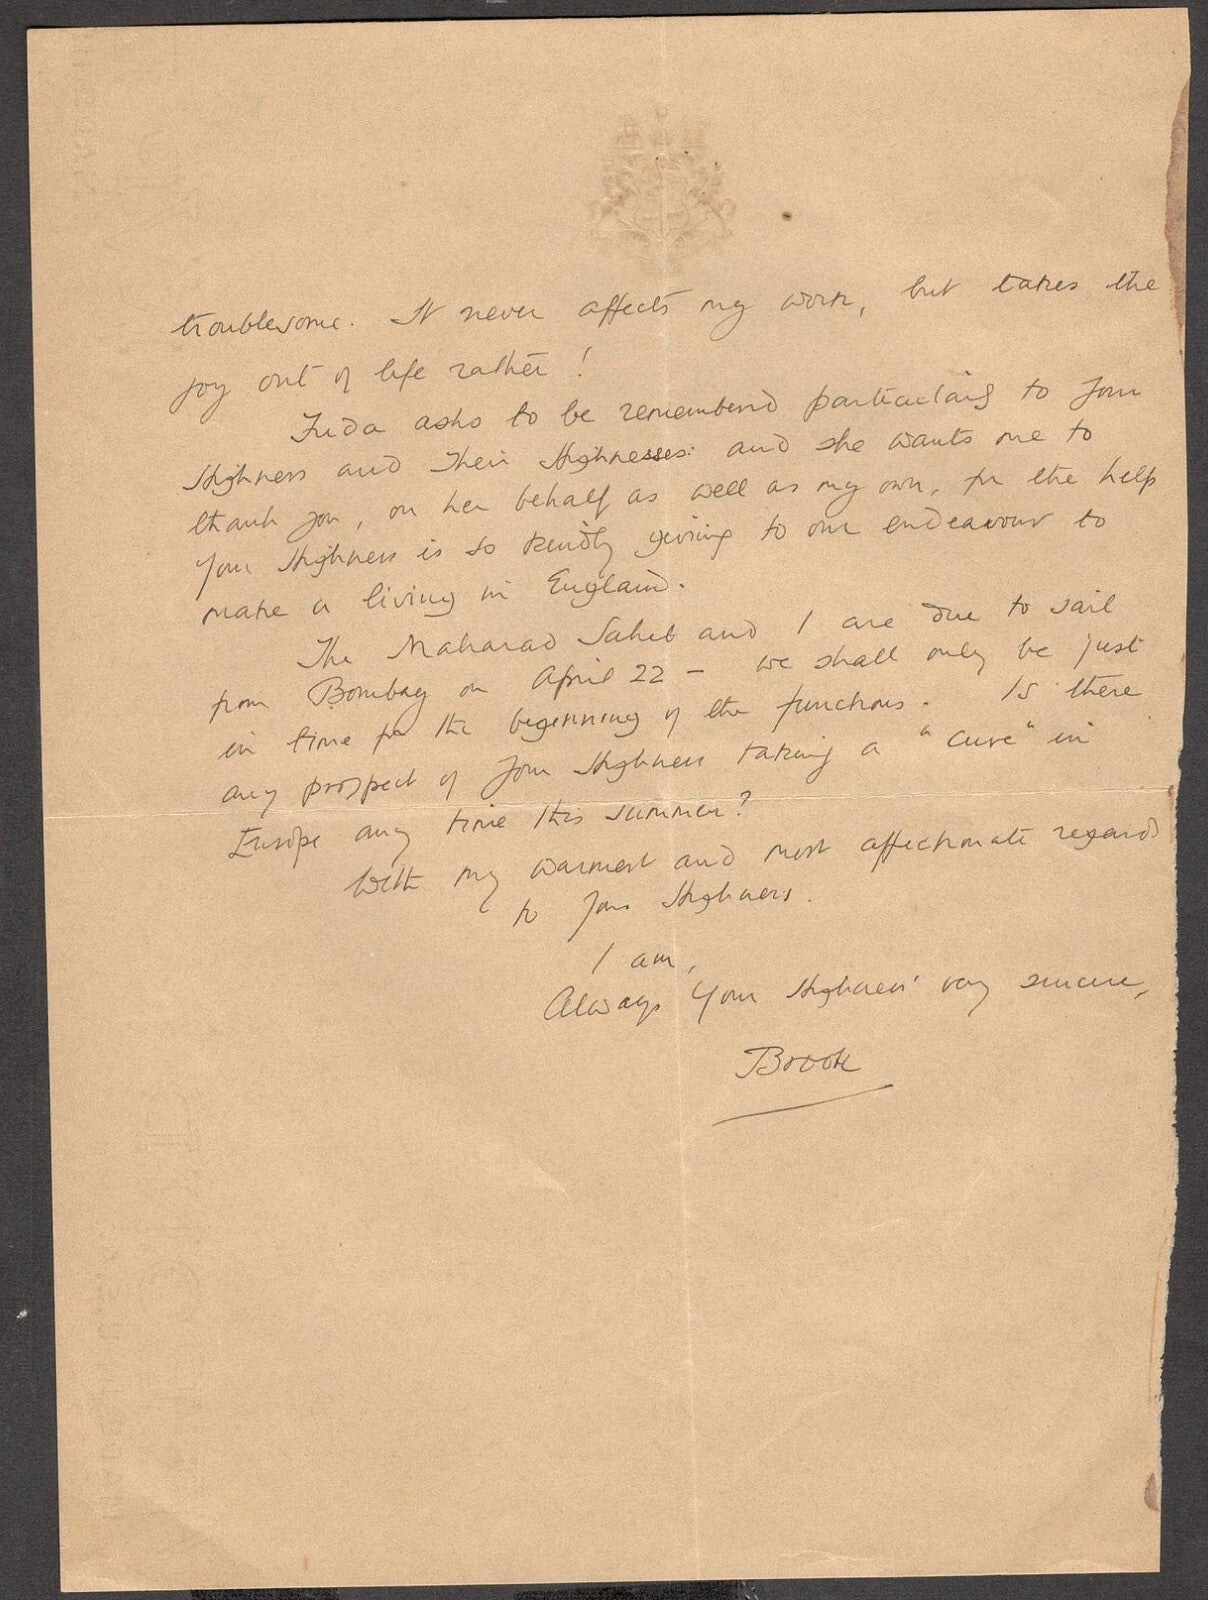 troublesome. It never affects my work, but takes the
joy out of life rather!
asks to be remembered particularly to Your
Highness and Their Highnesses: and she wants me to
thank you, on her behalf as well as my own, for the help
Your Highness is so kindly giving to our endeavour to
make a living in England.
The Maharao Saheb and I are due to sail
from Bombay on April 22 - we shall only be just
in time for the beginning of the functions. Is there
any prospect of Your Highness taking a "cure" in
Europe any time this summer?
With my warmest and most affectionate regards
to Your Highness.
I am,
Always Your Highness' very sincere,
Brook